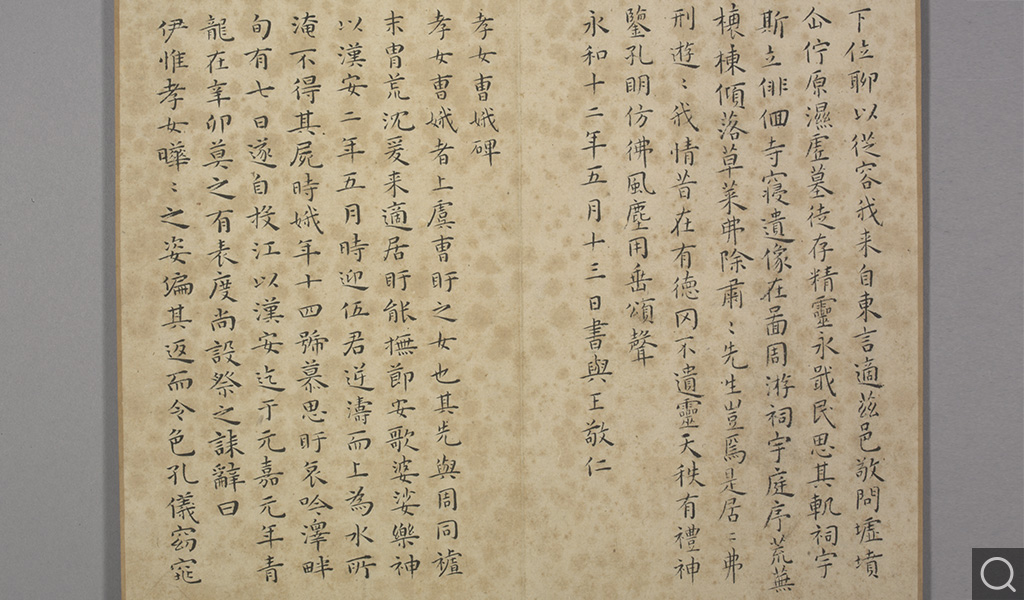 下位聊以從容我来自東言適兹邑敬問墟墳
仚佇原濕虚墓徒存精靈永戢民思其軌祠宇
斯立俳佪寺寢遺像在啚周游祠宇庭序荒蕪
榱棟傾落草莱弗除肅〻先生豈焉是居〻弗
刑遊〻我情昔在有德罔不遺靈天秩有禮神
鑒孔明仿彿風塵用垂頌聲
永和十二年五月十三日書與王敬仁
孝女曹娥碑
孝女曹娥者上虞曹盱之女也其先與周同禮
末胄荒沈爰来適居盱能撫節安歌婆娑樂神
以漢安二年五月時迎伍君逆濤而上為水所
淹不得其屍時娥年十四號慕思盱哀吟澤畔
旬有七日遂自投江以漢安迄于元嘉元年青
龍在辛卯莫之有表度尚設祭之誄辭曰
伊惟孝女曄〻之姿偏其返而令色孔儀窈窕